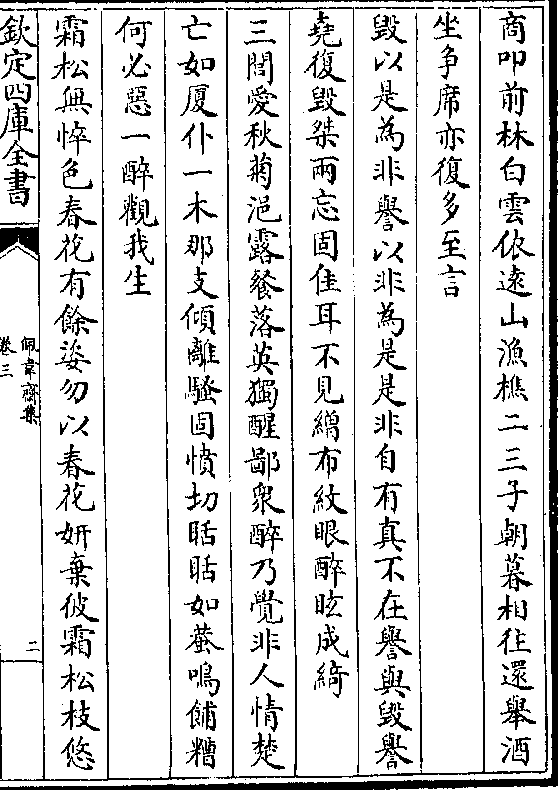 商叩前林白雲依遠山漁樵二三子朝暮相往還舉酒
坐爭席亦復多至言
毀以是為非譽以非為是是非自有真不在譽與毀譽
堯復毀桀兩忘固佳耳不見繒布紋眼醉眩成綺
三閭愛秋菊浥露餐落英獨醒鄙衆醉乃覺非人情楚
亡如厦仆一木那支傾離騷固憤切聒聒如蛩鳴餔糟
何必惡一醉觀我生
霜松無悴色春花有餘姿勿以春花妍棄彼霜松枝悠
欽定四庫全書
佩韋齋集
卷三
二